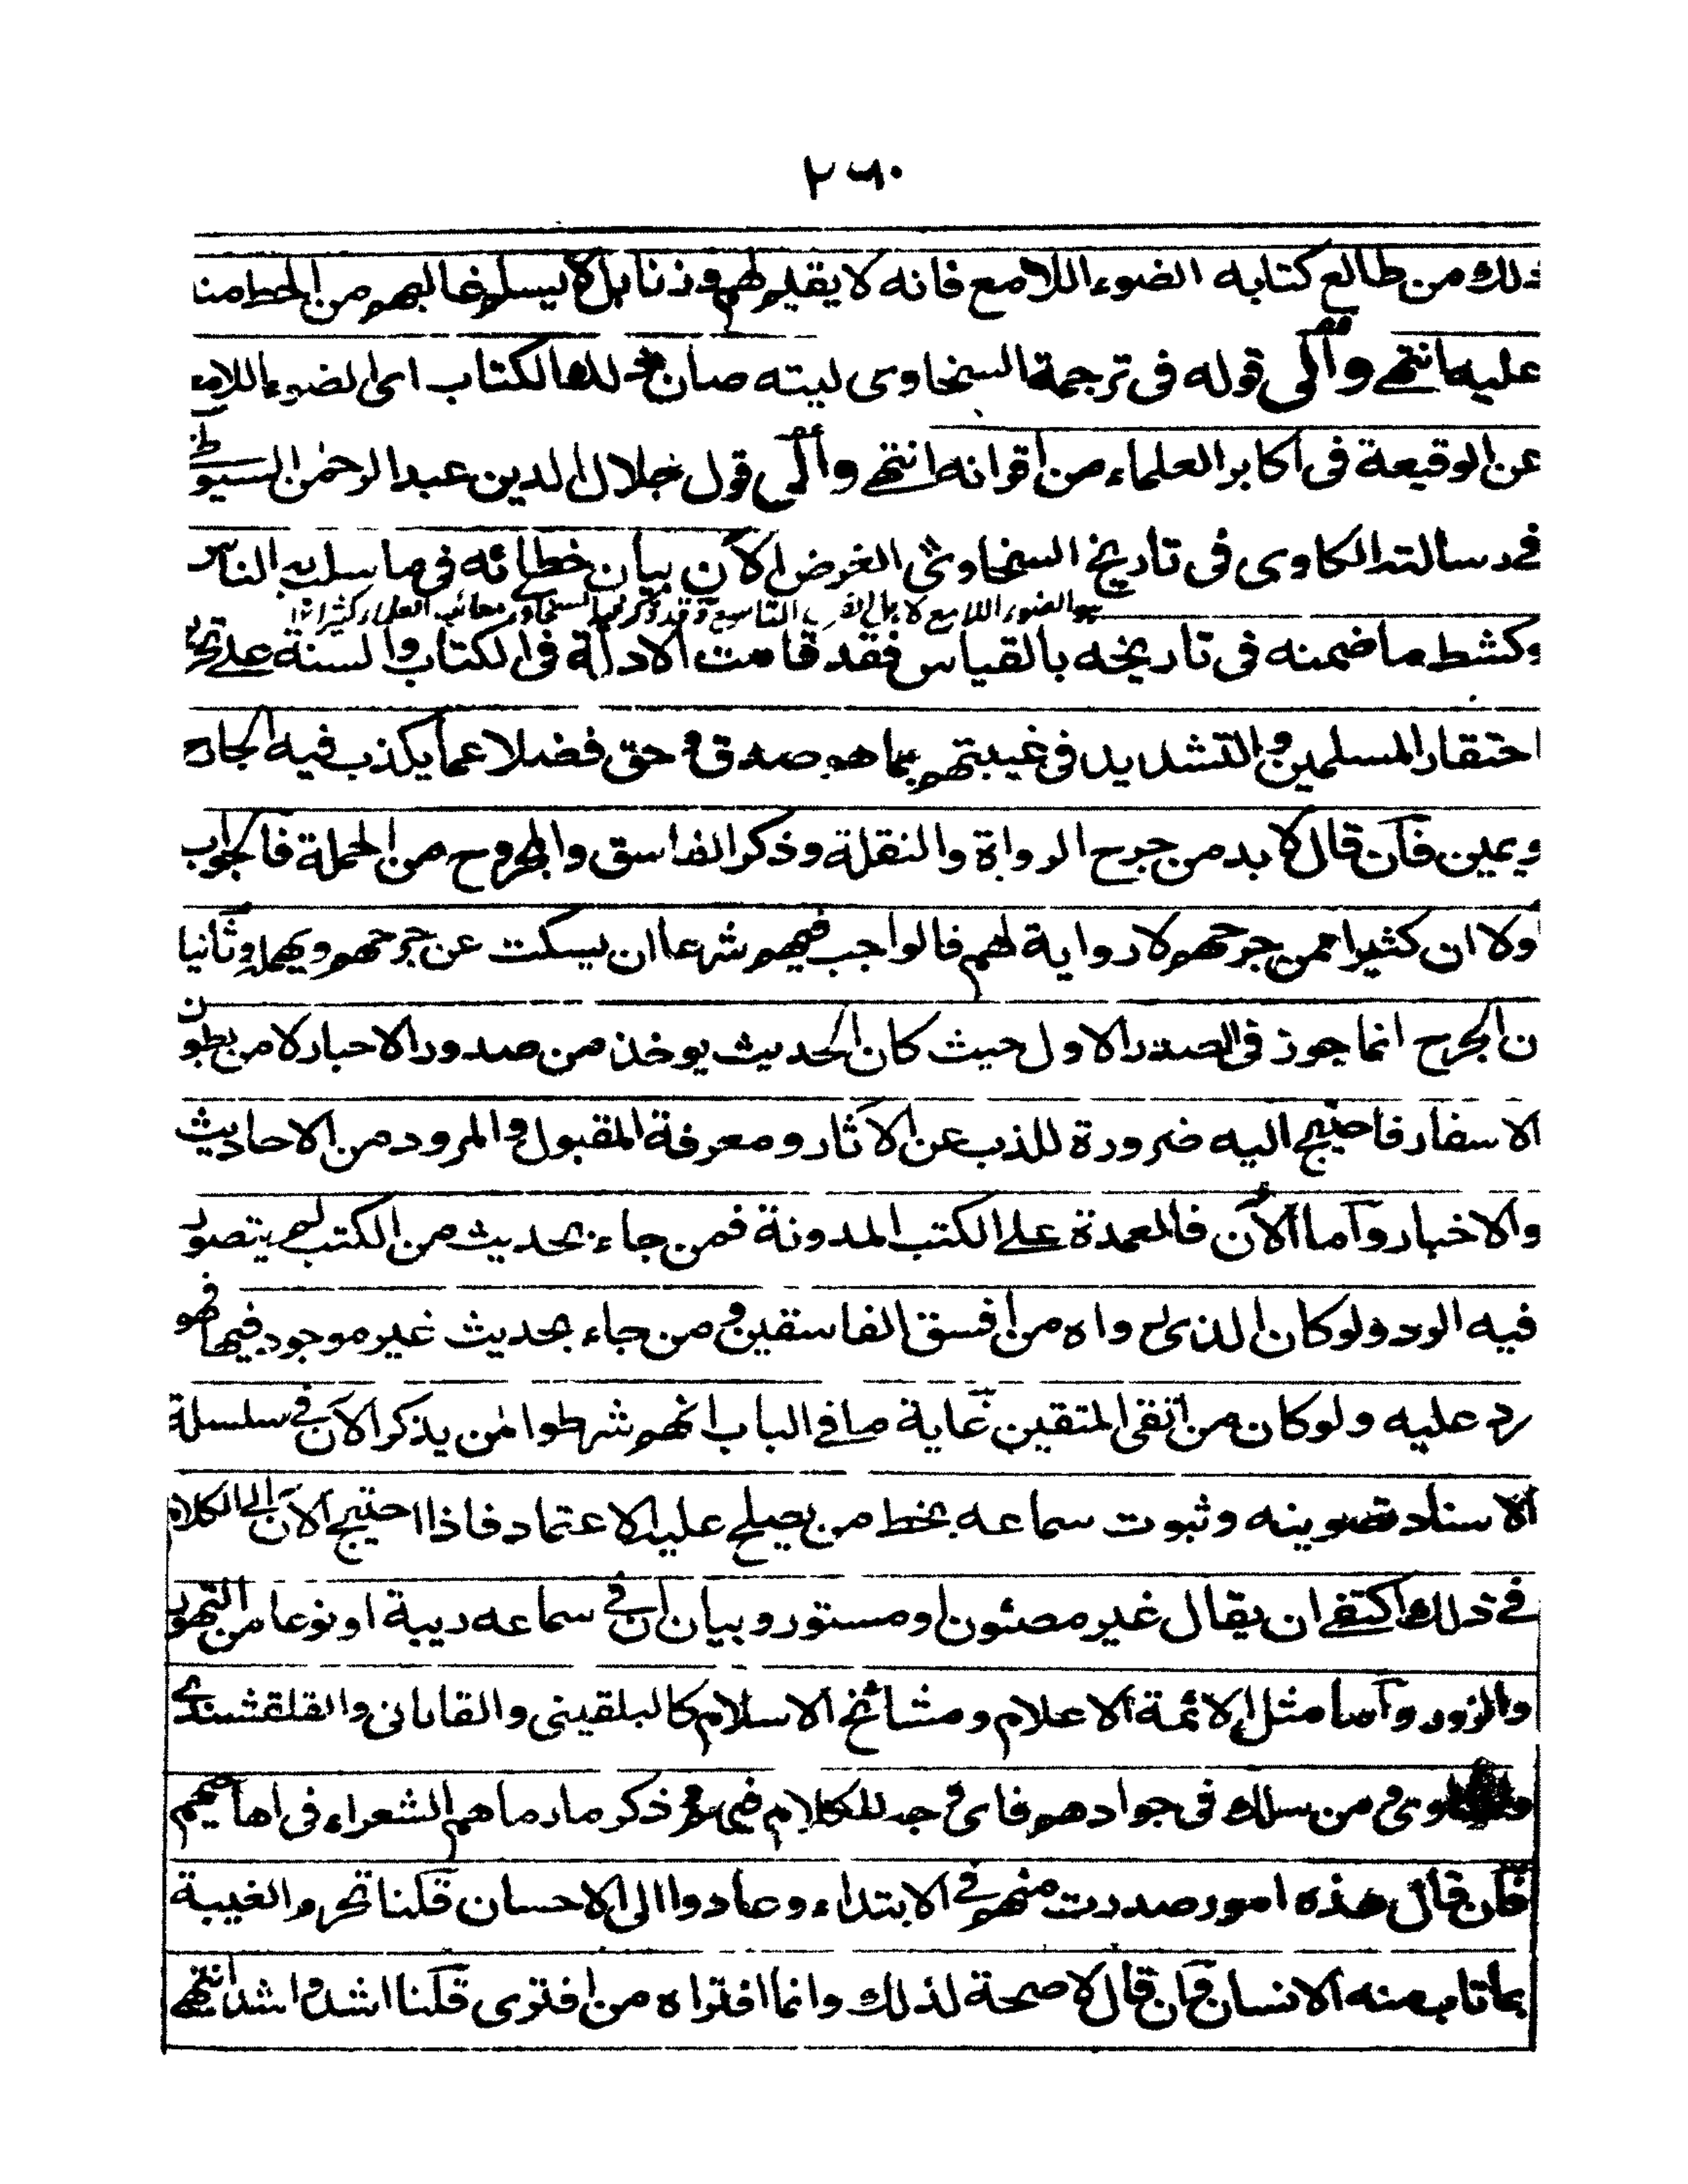 ٢٦٠
ذلك من طالع كتابه الضوء اللامع فانه لا يقيم لهم وزنا بل لا يسلم غالبهم من الحط منا
عليه انتهى والى قوله فى ترجمة السخاوى ليته صان ذلك الكتاب اى الضوء اللامع
عن الوقيعة فى اكابر العلماء من اقرانه انتهى والى قول جلال الدين عبد الرحمن السيوطى
فى رسالته الكاوى فى تاريخ السخاوى الغرض الآن بيان خطائه فى ما سلب به الناس
هو الضوء اللامع لاهل القرن التاسع وقد ذكر فيها السخاوى معائب العلماء كثيرا
وكشط ما ضمنه فى تاريخه بالقياس فقد قامت الادلة فى الكتاب والسنة على تحريم
احتقار المسلمين والتشديد فى غيبتهم بما هو صدق وحق فضلا عما يكذب فيه الجارح
ويمين فان قال لا بد من جرح الرواة والنقلة وذكر الفاسق والمجروح من الحملة فالجواب
اولا ان كثيرا ممن جرحهم لا رواية لهم فالواجب فيهم شرعا ان يسكت عن جرحهم ويهمله وثانيا
ان الجرح انما جوز فى الصدر الاول حيث كان الحديث يوخذ من صدور الاحبار لا من بطون
الاسفار فاحتيج اليه ضرورة للذب عن الآثار ومعرفة المقبول والمردود من الاحاديث
والاخبار واما الآن فالعمدة على الكتب المدونة فمن جاء بحديث من الكتب لم يتصور
فيه الرد ولو كان الذى رواه من افسق الفاسقين ومن جاء بحديث غير موجود فيها فهو
رد عليه ولو كان من اتقى المتقين غاية ما فى الباب انهم شرطوا لمن يذكر الآن فى سلسلة
الاسناد تصوينه وثبوت سماعه بخط من يصلح عليه الاعتماد فاذا احتيج الآن الى الكلام
فى ذلك اكتفى ان يقال غير مصئون او مستور وبيان ان فى سماعه ريبة او نوعا من التهور
والزور واما مثل الائمة الاعلام ومشائخ الاسلام كالبلقينى والقاياتى والقلقشندى
ومن سلك فى جوادهم فاى وجه للكلام فيهم وذكر ما رماهم الشعراء فى اهاجيهم
فان قال هذه امور صدرت منهم فى الابتداء وعادوا الى الاحسان قلنا تحرم الغيبة
بما تاب منه الانسان وان قال لا صحة لذلك وانما افتراه من افترى قلنا اشد واشد انتهى